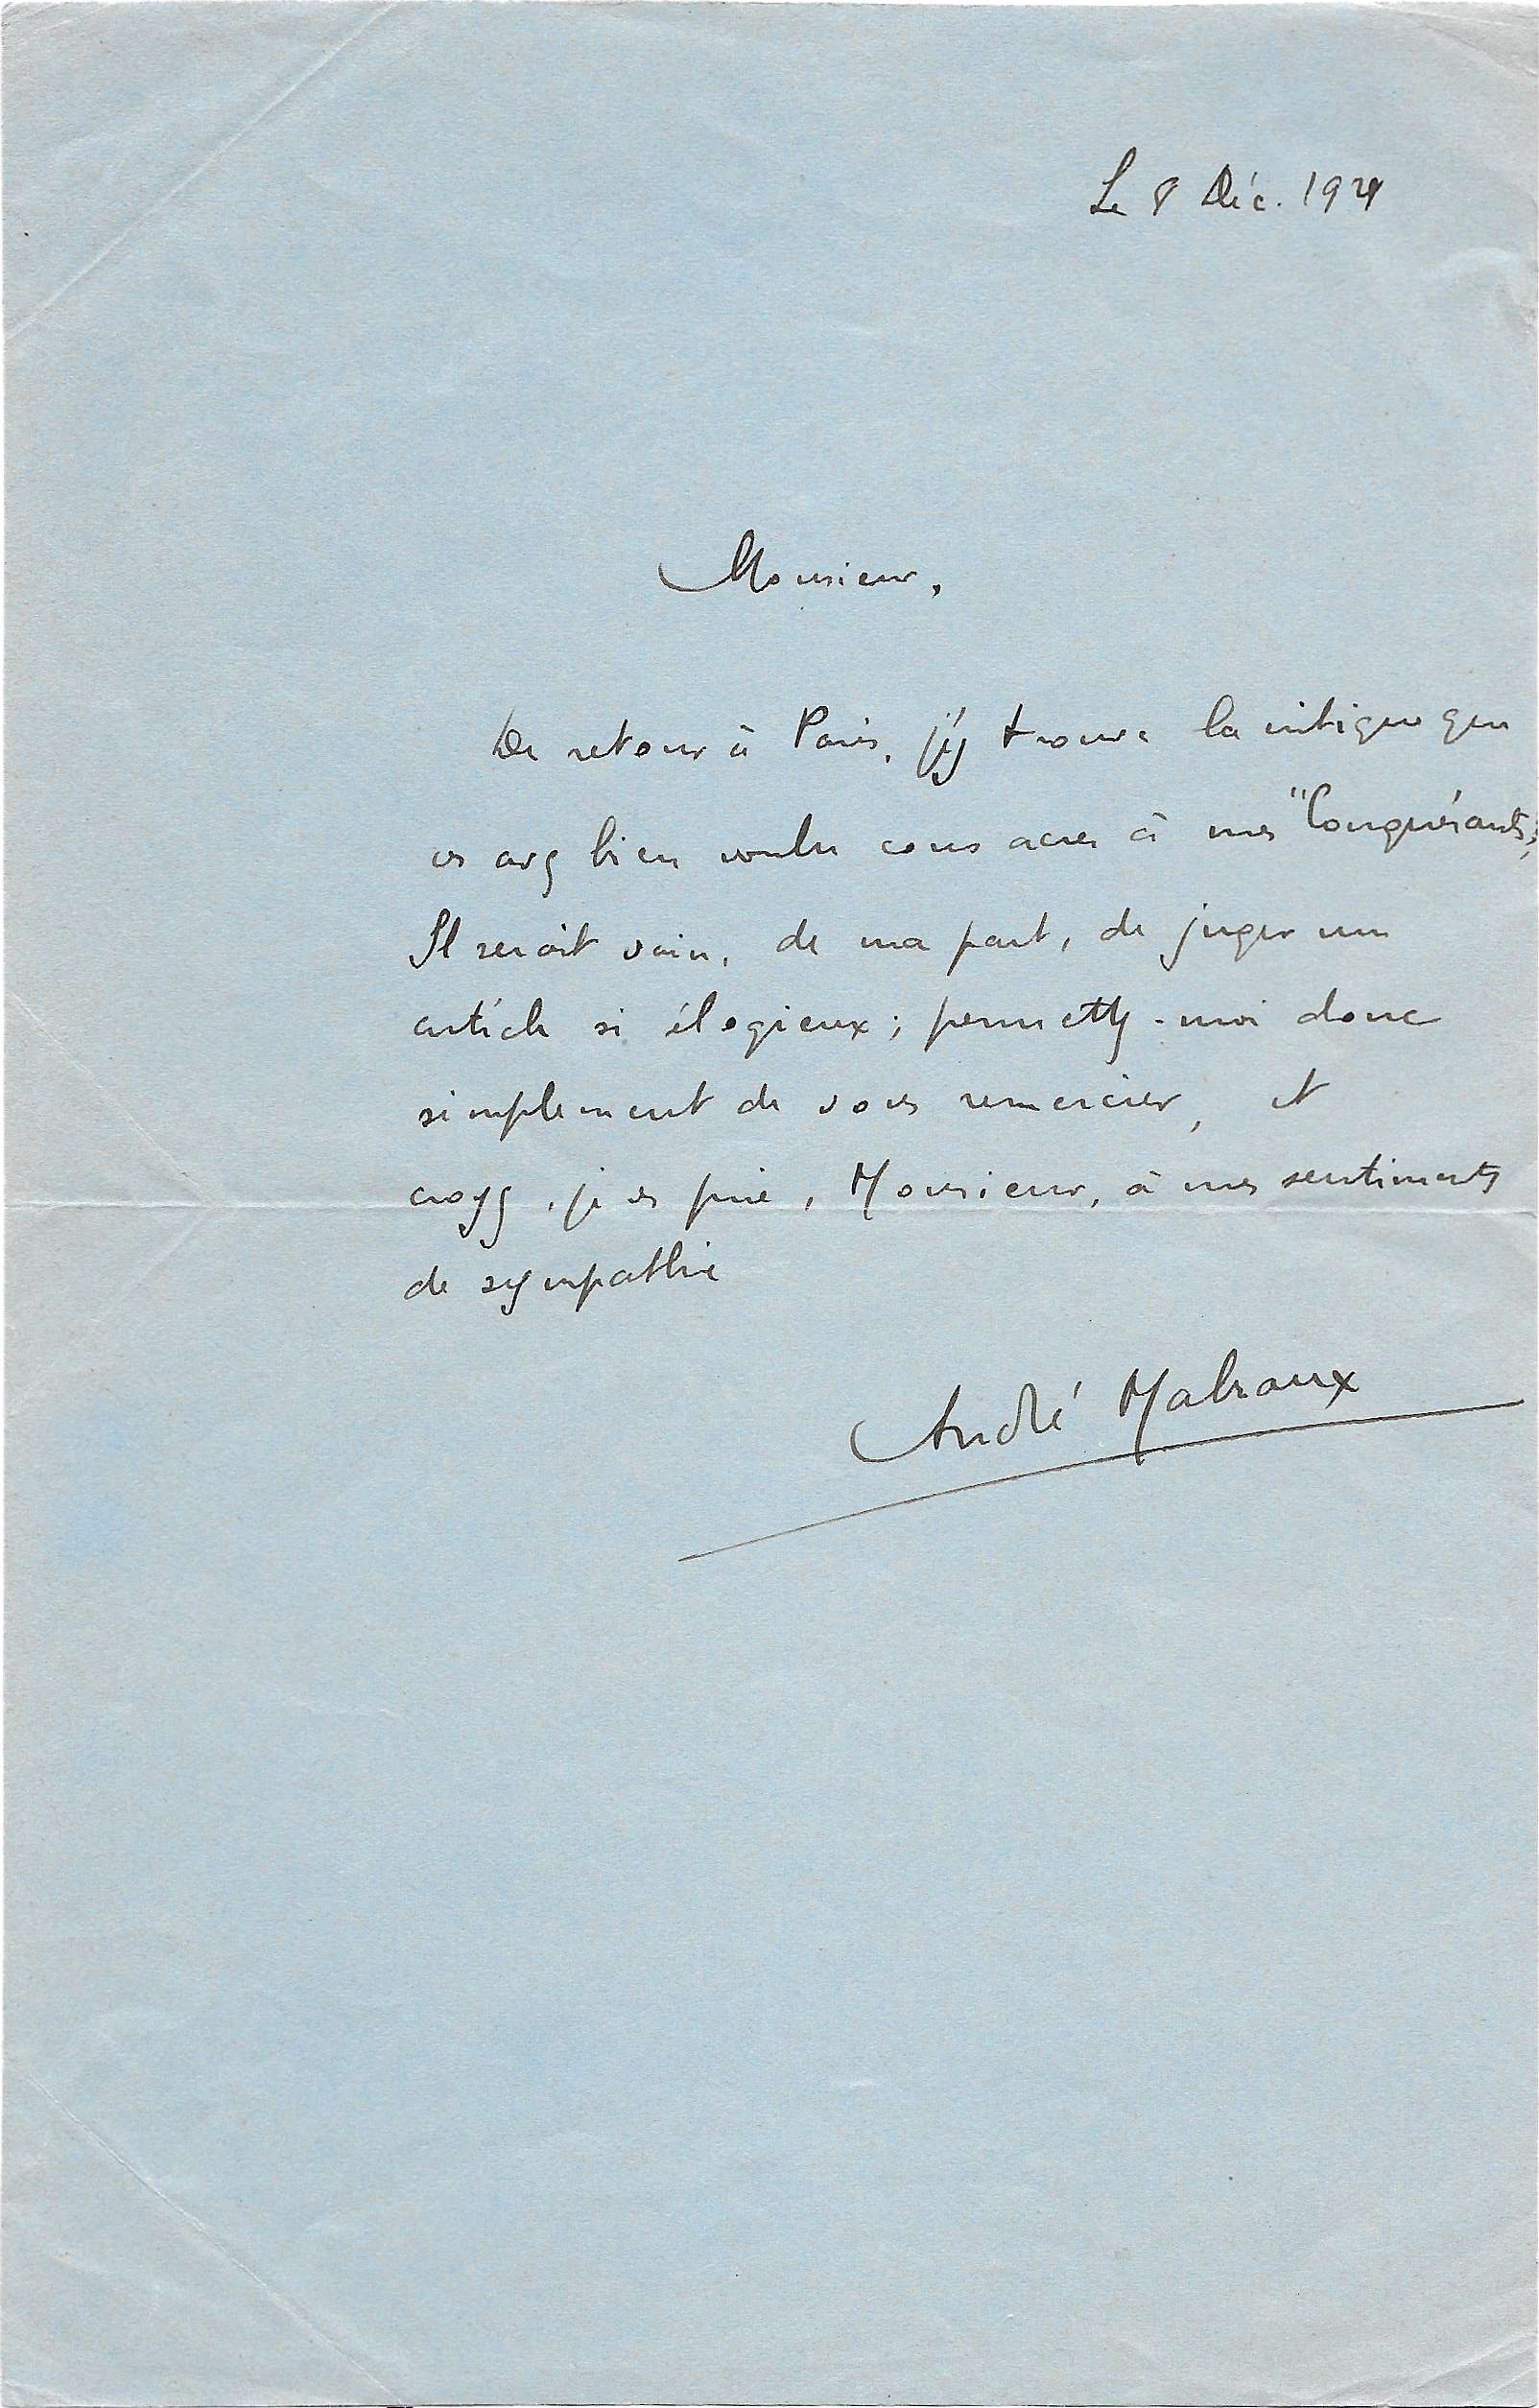 Le 8 Déc. 1928
Monsieur,
De retour à Paris, j'y trouve la critique que
vs avez bien voulu consacrer à mes "Conquérants".
Il serait vain, de ma part, de juger un
article si élogieux ; permettez-moi donc
simplement de vous remercier, et
croyez, je vs prie, Monsieur, à mes sentiments
de sympathie
André Malraux